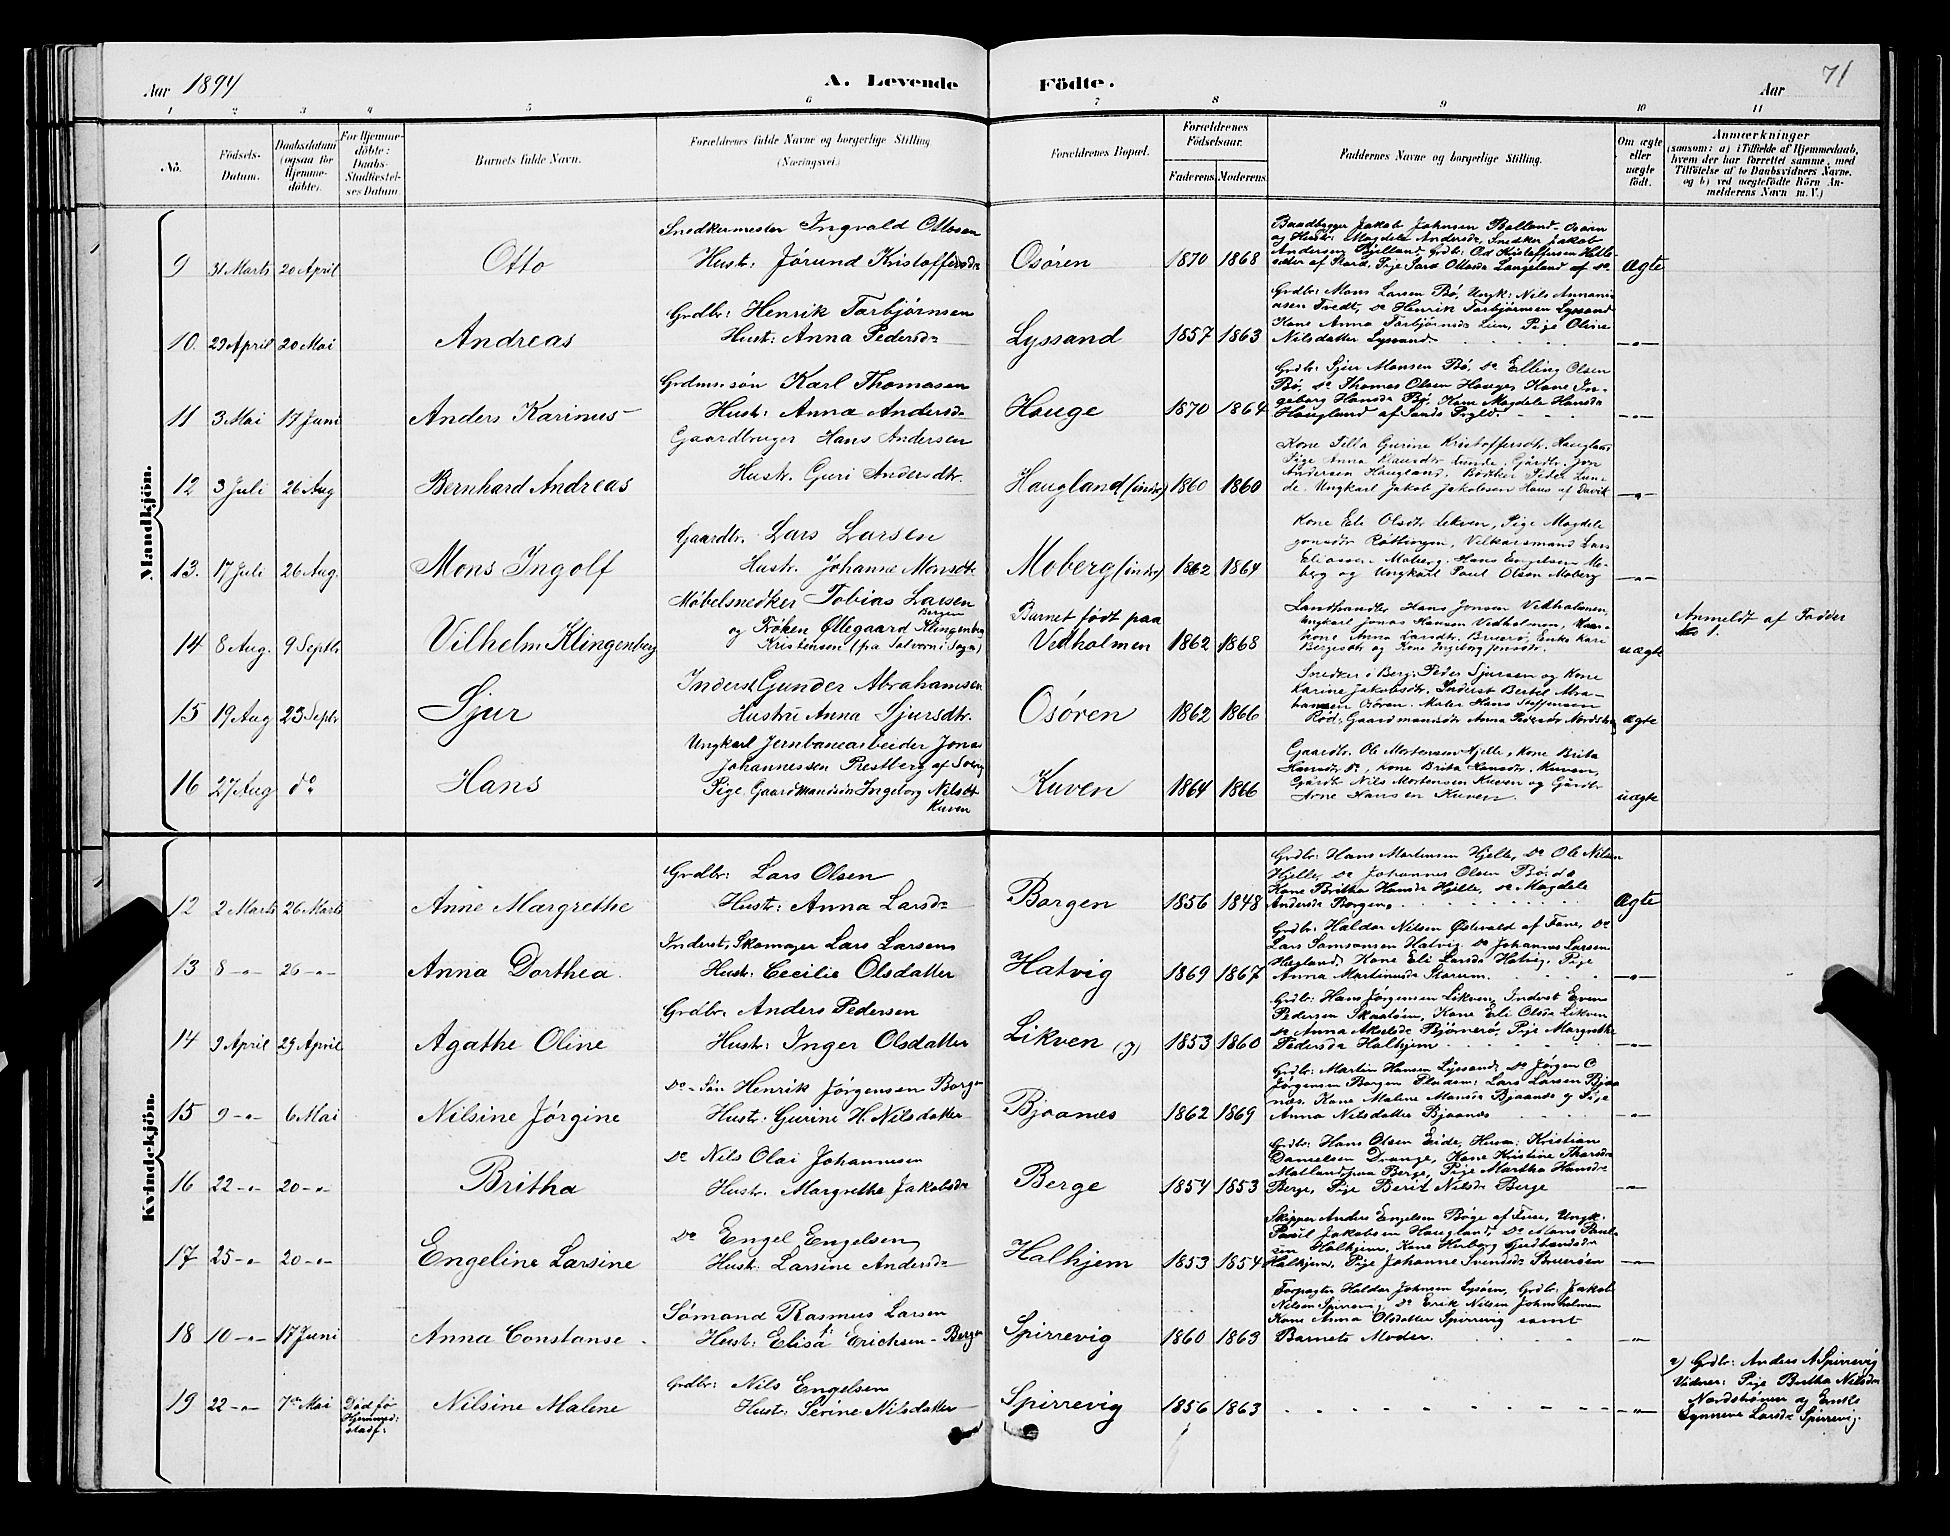 Aar 1894
A. Levende Födte.
Aar
71
1 2 3 4 5 6 7 8 9 10 11
No.
Födsels-Datum.
Daabsdatum (ogsaa for Hjemmedöbte).
For Hjemmedöbte: Daabs-Stadfæstelses Datum
Barnets fulde Navn.
Forældrenes fulde Navne og borgerlige Stilling (Næringsvei.)
Forældrenes Bopæl.
Forældrenes Födselsaar.
Faderens. Moderens.
Faddernes Navne og borgerlige Stilling.
Om ægte eller uægte födt.
Anmærkninger
(saasom: a) i Tilfælde af Hjemmedaab, hvem der har forrettet samme, med Tilföielse af to Daabsvidners Navne. og b) ved uægtefödte Börn Anmelderens Navn m. V.)
Mandkjön.
9 31 Marts 20 April
Otto
Snedkermester Ingvald Ottosen
Hust: Jørund Kristoffersdr
Osören 1870 1868
Baadbygger Jakob Johnsen Bolland Osören
og Hustr: Magdela Andersdr, Snedker Jakob
Andersen Bjelland, Grdbr: Od Kristoffersen Hille-
af Stord, Pige Sara Ottosdr Langeland af do
Ægte
10. 29 April 20 Mai
Andreas
Grdbr: Henrik Torbjørnsen
Hust: Anna Pedersdr
Lyssand 1857 1863
Grdbr: Mons Larsen Bö, Ungk: Nils Annanias
asen Tvedt, do Henrik Torbjørnsen Lyssand
Kone Anna Torbjørnsdr Lien, Pige Oline
Nilsdatter Lyssand
-"-
11 3 Mai 17 Juni
Anders Karinus
Grdmnssøn Karl Thomasen
Hust: Anna Andersdr
Hauge 1870 1864
Grdbr: Sjur Monsen Bö, do Elling Olsen
Bö, do Thomas Olsen Hauge, Kone In-
geborg Hansdr Bö, Kone Magdele Hansdr
Haugland af Sands Pgld.
-"-
12 3 Juli 26 Aug
Bernhard Andreas
Gaardbruger Hans Andersen
Hustr. Guri Andersdtr.
Haugland (indr) 1860 1860
Kone Gurine Kristoffersdtr. Haugland
Pige Anna Klausdtr Lunde. Gårdbr. Jon
Andersen Haugland. Bødker Peder Lun-
de. Ungkarl Jakob Jakobsen Haus af Davik
-"-
13. 17 Juli 26 Aug.
Mons Ingolf
Gaardbr. Lars Larsen
Hustr. Johanne Monsdtr
Moberg (indr) 1862 1864
Kone Eli Olsdtr Lekven, Pige Magdele
Røttingen, Vilkarsmand Lars
Eliassen Moberg. Hans Engelsen Mo-
berg og Ungkarl Paul Olsen Moberg
-"-
14 8 Aug. 9 Septbr
Vilhelm Klingenberg
Møbelsnedker Tobias Larsen
Bergen
og Frøken Øllegaard Klingenberg
Kristensen (fra Solvorn i Sogn)
Barnet født paa
Vedholmen 1862 1868
Landhandlr Hans Jonsen Vedholmen,
Ungkarl Jonas Hansen Vedholmen,
Kone Anna Larsdtr. Bruerö, Enke Kari
Bergesdtr og Kone Ingeborg Jonsdtr.
uægte
Anmeldt af Fadder
No 1.
15 19 Aug 23 Septbr
Sjur
Inderst Gunder Abrahamsen
Hustru Anna Sjursdtr.
Osören 1862 1866
Snedker i Berg. Peder Sjursen og Kone
Karine Jakobsdtr. Inderst Bertil Abra-
hamsen Osören. Maler Hans Steffensen
Röd. Gaardmandsdtr Anna Pedersdtr Nordstrøm
ægte
16 27 Aug do
Hans
Ungkarl Jernbanearbeider Jonas
Johannessen Prestberg af Solerg
Pige Gaardmandsdtr Ingeborg Nilsdtr
Kuven
Kuven 1864 1866
Gaardbr. Ole Mortensen Hjelle, Kone Brita
Hansdtr do, Kone Brita Hansdtr. Kuven,
Gårdbr Nils Mortensen Kuven og Gårdbr
Arne Hansen Kuven.
uægte
Kvindekjön.
12 2 Marts 26 Marts
Anne Margrethe
Grdbr: Lars Olsen
Hust: Anna Larsdr
Borgen 1856 1848
Grdbr: Hans Martinsen Hjelle, do Ole Nilsen
Hjelle, do Johannes Olsen Bö,
Kone Britha Hansdr Hjelle, do Magdele
Andersdr Borgen.
Ægte
13 8 -"- 26 -"-
Anna Dorthea
Inderst, Skomager Lars Larsen
Hust: Cecilie Olsdatter
Hatvig 1869 1867
Grdbr: Haldor Nilsen Østvold af Fane, do
Lars Samsonsen Hatvig do Johannes Larsen
Hegland, Kone Eli Larsdr Hatvig, Pige
Anna Martinusdr Storum.
-"-
14 9 April 29 April
Agathe Oline
Grdbr: Anders Pedersen
Hust: Inger Olsdatter
Likven (y) 1853 1860
Grdbr: Hans Jørgensen Likven, Inderst Even
Pedersen Skaatöen, Kone Eli Olsdr Likven
do Anna Akselsdr Bjørnerö, Pige Margrethe
Pedersdr Halhjem
-"-
15 9 -"- 6 Mai
Nilsine Jörgine
Do- Søn Henrik Jörgensen Borgen
Hust: Gurine H. Nilsdatter
Bjoanes 1862 1869
Grdbr: Martin Hansen Lyssand, do Jörgen C
Jörgensen Borgen Pladsm: Lars Larsen Bjoa
nes, Kone Malene Monsdr Bjoanes og Pige
Anna Nilsdatter Bjoanes
-"-
16 22 -"- 20 -"-
Britha
Do Nils Olai Johannesen
Hust. Margrethe Jakobsdr
Berge 1854 1853
Grdbr: Hans Olsen Eide, Husm: Kristian
Danielsen Drange, Kone Kristine Thorsdr
Matland paa Berge, Pige Martha Hansdr
Berge, Pige Berit Nilsdr Berge
-"-
17 25 -"- 20 -"-
Engeline Larsine
Do Engel Engelsen
Hust: Larsine Andersdr
Halhjem 1853 1854
Skipper Anders Engelsen Böge af Fuse, Ungk.
Poul Jakobsen Haugland, do Mons Paul-
sen Halhjem, Kone Herborg Gudbandsdr
Halhjem, Pige Johanne Svendsdr Bruerøen
-"-
18 10 -"- 17 Juni
Anna Constanse
Sömand Rasmus Larsen
Hust: Elisa Erichsen - Bergen
Spirrevig 1860 1863
Forpagter Haldor Johnsen Lysöen, Grdbr: Jakob
Nilsen Spirrevig, do Erik Nilsen Johnsholmen
Kone Anna Olsdatter Spirrevig samt
Barnets Moder.
-"-
19 22 -"- 7de Mai
Död før
Hjemmed:
stadf:
Nilsine Malene
Grdbr: Nils Engelsen
Hust: Serine Nilsdatter
Spirrevig 1856 1863
-"-
a) Grdbr: Anders A Spirrevig
Vidner: Pige Britha Nilsdr
Nordströnen og Enke
Synneve Larsdr Spirrevig.